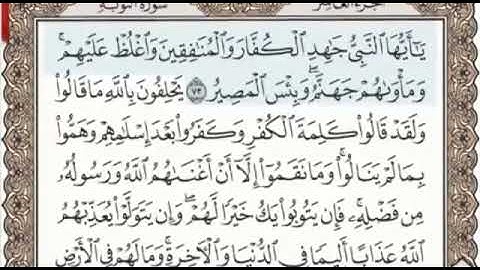 سورة التوبة الجزء العاشر
يَٰٓأَيُّهَا ٱلنَّبِيُّ جَٰهِدِ ٱلْكُفَّارَ وَٱلْمُنَٰفِقِينَ وَٱغْلُظْ عَلَيْهِمْ ۚ
وَمَأْوَىٰهُمْ جَهَنَّمُ ۖ وَبِئْسَ ٱلْمَصِيرُ ٧٣ يَحْلِفُونَ بِٱللَّهِ مَا قَالُوا۟
وَلَقَدْ قَالُوا۟ كَلِمَةَ ٱلْكُفْرِ وَكَفَرُوا۟ بَعْدَ إِسْلَٰمِهِمْ وَهَمُّوا۟
بِمَا لَمْ يَنَالُوا۟ ۚ وَمَا نَقَمُوٓا۟ إِلَّآ أَنْ أَغْنَىٰهُمُ ٱللَّهُ وَرَسُولُهُۥ
مِن فَضْلِهِۦ ۚ فَإِن يَتُوبُوا۟ يَكُ خَيْرًا لَّهُمْ ۖ وَإِن يَتَوَلَّوْا۟ يُعَذِّبْهُمُ
ٱللَّهُ عَذَابًا أَلِيمًا فِى ٱلدُّنْيَا وَٱلْـَٔاخِرَةِ ۚ وَمَا لَهُمْ فِى ٱلْأَرْضِ